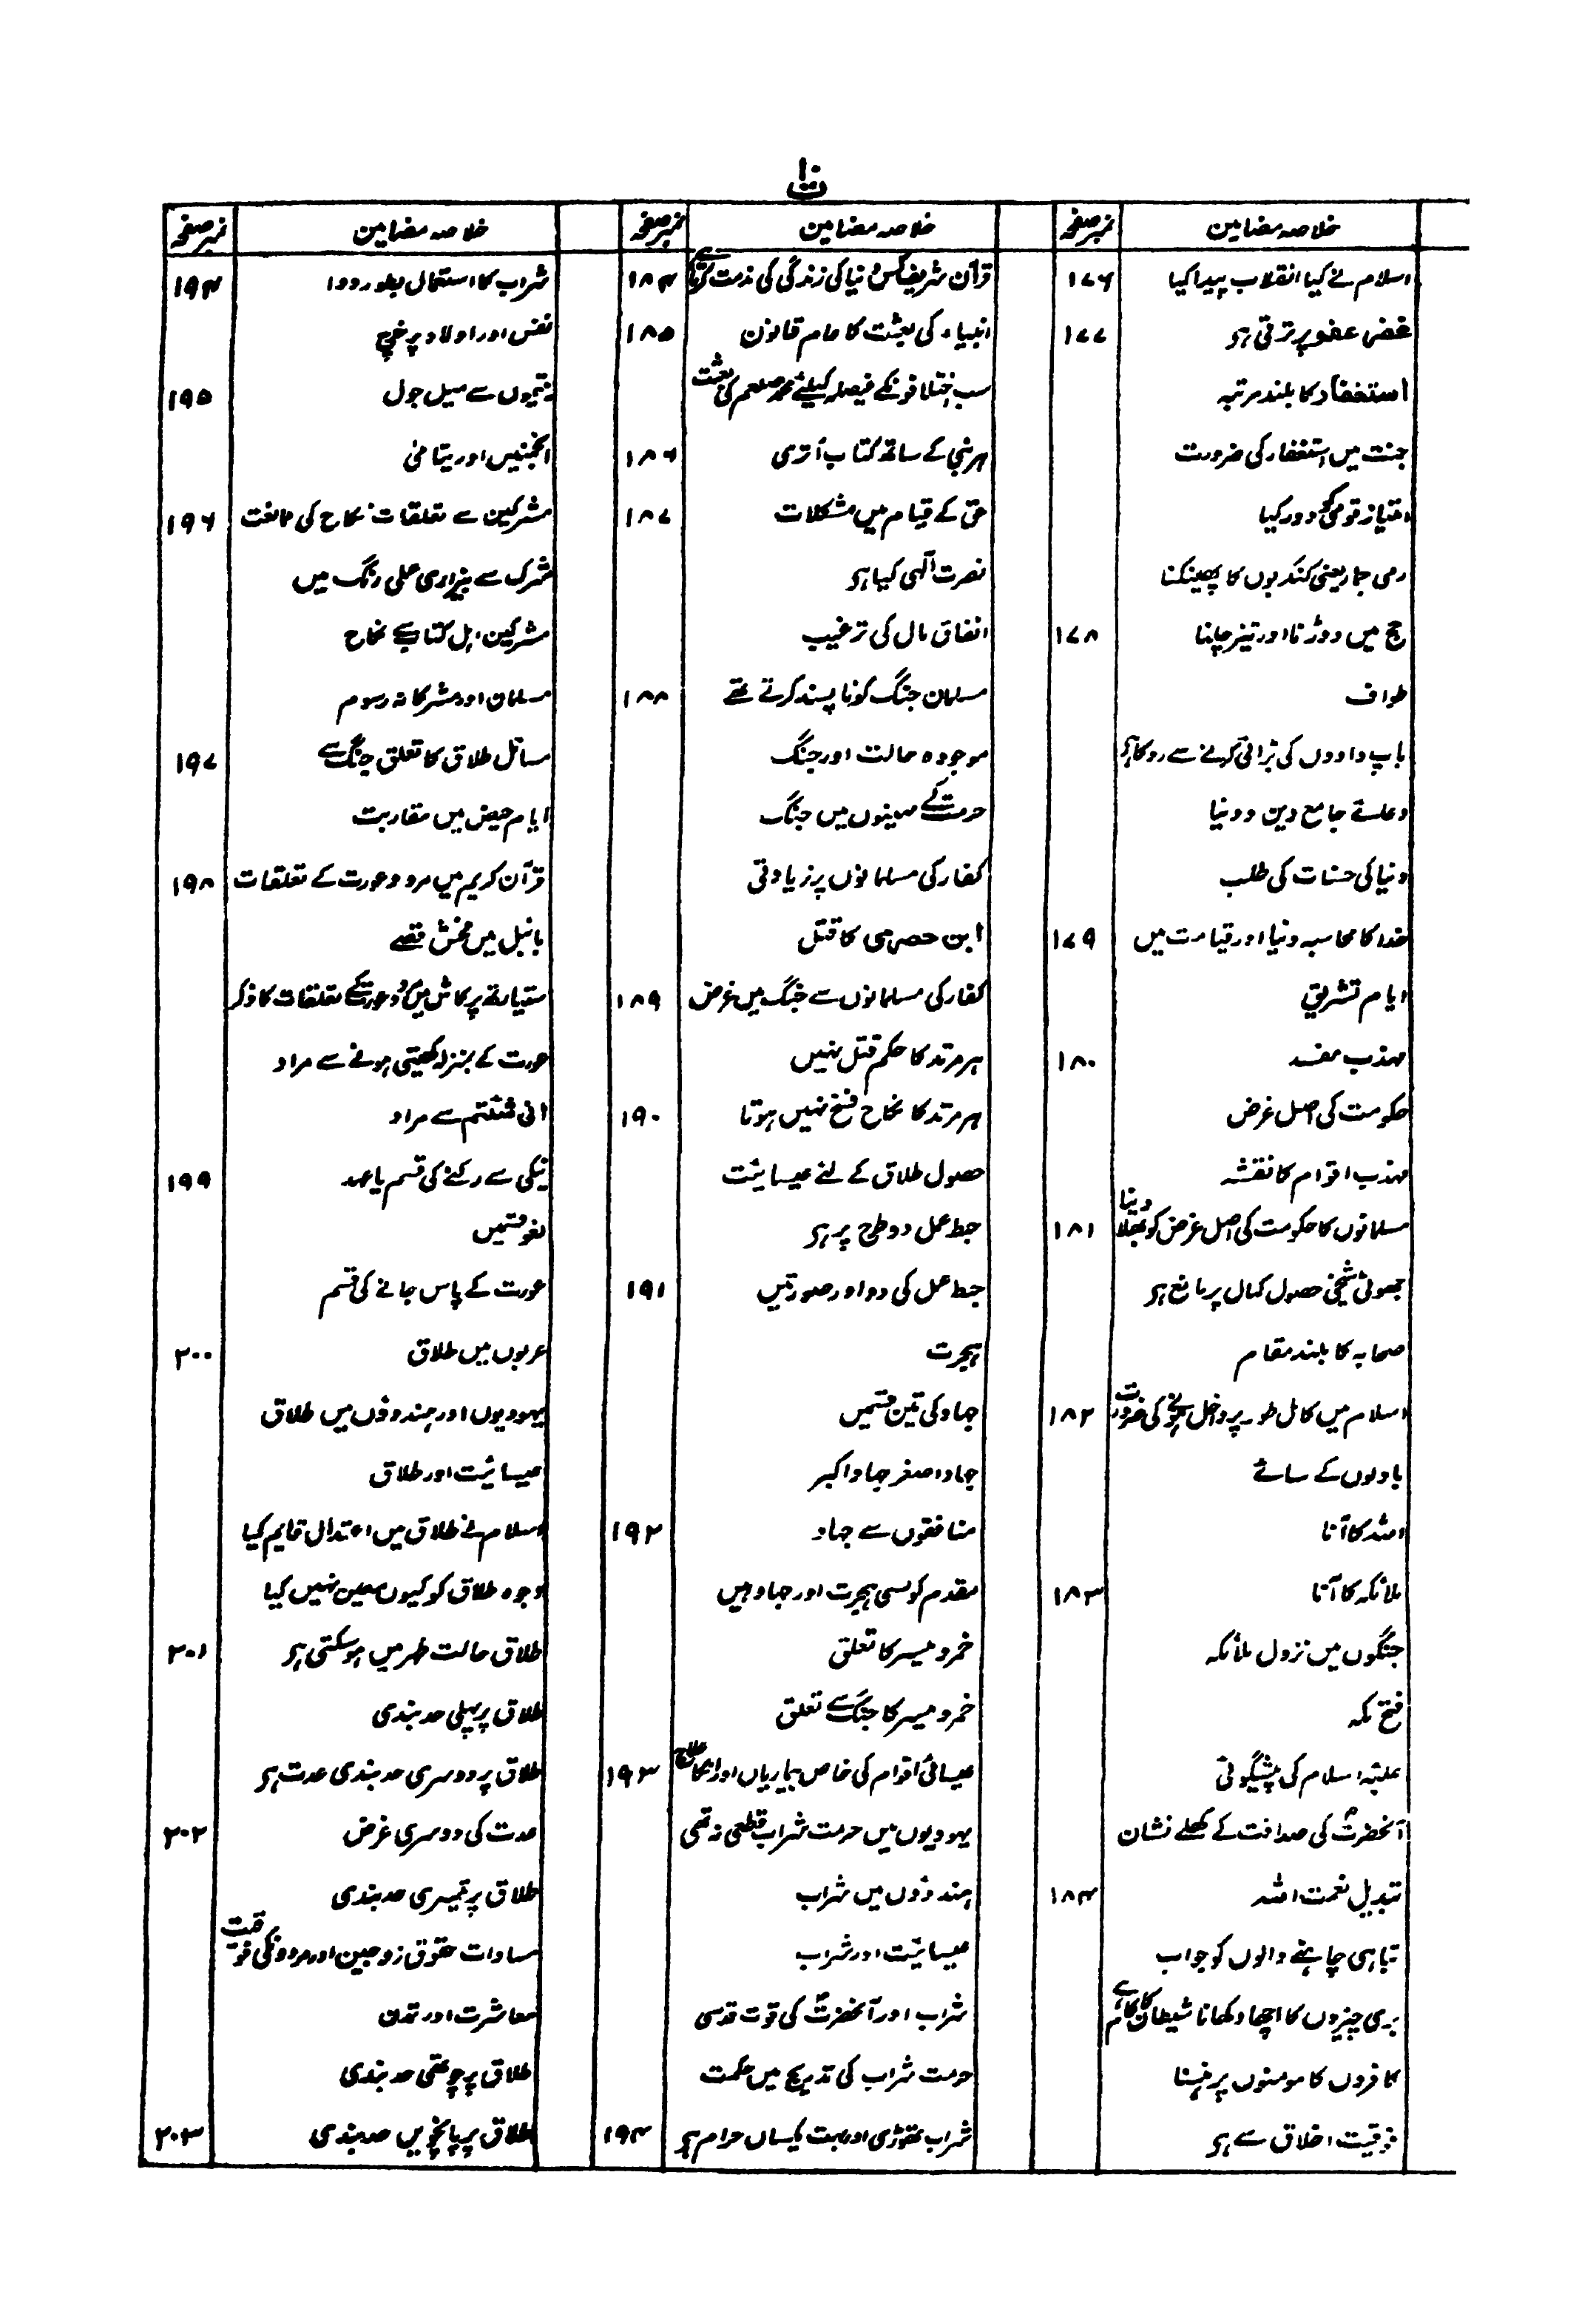 ت۱۰
خلاصہ مضامین نمبر صفحہ
اسلام نے کیا انقلاب پیدا کیا ۱۷۶
غض عفو پر ترقی ہو ۱۷۷
استغفار کا بلند مرتبہ
جنت میں استغفار کی ضرورت
امتیاز قومی کو دور کیا
رمی جمار یعنی کنکریوں کا پھینکنا
حج میں دوڑنا اور تیز چلنا ۱۷۸
طواف
باپ دادوں کی بڑائی کرنے سے روکا ہو
دعائے جامع دین و دنیا
دنیا کی حسنات کی طلب
خدا کا محاسبہ دنیا اور قیامت میں ۱۷۹
ایام تشریق
مہذب مفسد ۱۸۰
حکومت کی اصل غرض
مہذب اقوام کا نقشہ
مسلمانوں کا حکومت کی اصل غرض کو بھلا دینا ۱۸۱
جھوٹی شیخی حصول کمال پر مانع ہو
صحابہ کا بلند مقام
اسلام میں کامل طور پر داخل ہونے کی ضرورت ۱۸۲
بادلوں کے سائے
اللہ کا آنا
ملائکہ کا آنا ۱۸۳
جنگوں میں نزول ملائکہ
فتح مکہ
غلبۂ اسلام کی پیشگوئی
آنحضرتؐ کی صداقت کے کھلے نشان
تبدیل نعمت اللہ ۱۸۴
تباہی چاہنے والوں کو جواب
بری چیزوں کا اچھا دکھانا شیطان کا کام ہے
کافروں کا مومنوں پر ہنسنا
فوقیت اخلاق سے ہو
خلاصہ مضامین نمبر صفحہ
قرآن شریف کس دنیا کی زندگی کی مذمت کرتا ہے ۱۸۴
انبیاء کی بعثت کا عام قانون ۱۸۵
سب اختلافونکے فیصلہ کیلئے محمد صلعم کی بعثت
ہر نبی کے ساتھ کتاب اُتری ۱۸۶
حق کے قیام میں مشکلات ۱۸۷
نصرت الٰہی کیا ہو
انفاق مال کی ترغیب
مسلمان جنگ کو ناپسند کرتے تھے ۱۸۸
موجودہ حالت اور جنگ
حرمت کے مہینوں میں جنگ
کفار کی مسلمانوں پر زیادتی
ابن حضرمی کا قتل
کفار کی مسلمانوں سے جنگ میں غرض ۱۸۹
ہر مرتد کا حکم قتل نہیں
ہر مرتد کا نکاح فسخ نہیں ہوتا ۱۹۰
حصول طلاق کے لئے عیسائیت
حبط عمل دو طرح پر ہو
حبط عمل کی دو اور صورتیں ۱۹۱
ہجرت
جہاد کی تین قسمیں
جہاد اصغر جہاد اکبر
منافقوں سے جہاد ۱۹۲
مقدم کوسی ہجرت اور جہاد ہیں
خمر و میسر کا تعلق
خمر و میسر کا جنگ سے تعلق
عیسائی اقوام کی خاص بیماریاں اور انکا علاج ۱۹۳
یہودیوں میں حرمت شراب قطعی نہ تھی
ہندوؤں میں شراب
عیسائیت اور شراب
شراب اور آنحضرتؐ کی قوت قدسی
حرمت شراب کی تدریج میں حکمت
شراب تھوڑی اور بہت یکساں حرام ہو ۱۹۴
خلاصہ مضامین نمبر صفحہ
شراب کا استعمال بطور دوا ۱۹۴
نفس اور اولاد پر خرچ
یتیموں سے میل جول ۱۹۵
انجمنیں اور یتامیٰ
مشرکین سے تعلقات نکاح کی ممانعت ۱۹۶
شرک سے بیزاری عملی رنگ میں
مشرکین اہل کتاب سے نکاح
مسلمان اور مشرکانہ رسوم
مسائل طلاق کا تعلق جنگ سے ۱۹۷
ایام حیض میں مقاربت
قرآن کریم میں مرد و عورت کے تعلقات ۱۹۸
بائبل میں فحش قصے
ستیارتھ پرکاش میں مرد و عورت کے تعلقات کا ذکر
عورت کے بمنزلہ کھیتی ہونے سے مراد
انی شئتم سے مراد
نیکی سے رکنے کی قسم یا عہد ۱۹۹
لغو قسمیں
عورت کے پاس جانے کی قسم
عربوں میں طلاق ۲۰۰
یہودیوں اور ہندوؤں میں طلاق
عیسائیت اور طلاق
اسلام نے طلاق میں اعتدال قایم کیا
وجوہ طلاق کو کیوں معین نہیں کیا
طلاق حالت طہر میں ہو سکتی ہو ۲۰۱
طلاق پر پہلی حد بندی
طلاق پر دوسری حد بندی عدت ہو
عدت کی دوسری غرض ۲۰۲
طلاق پر تیسری حد بندی
مساوات حقوق زوجین اور مردونکی فوقیت
معاشرت اور تمدن
طلاق پر چوتھی حد بندی
طلاق پر پانچویں حد بندی ۲۰۳